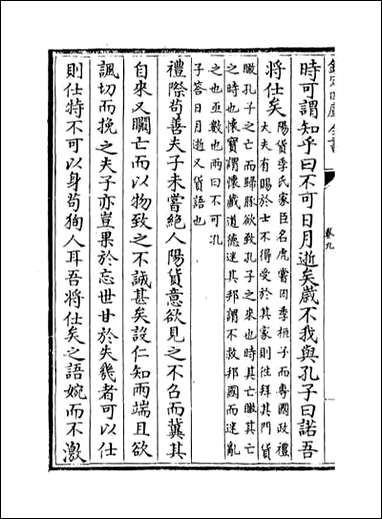 欽定四庫全書
卷九
時可謂知乎曰不可日月逝矣歲不我與孔子曰諾吾
將仕矣
陽貨季氏家臣名虎嘗囚季桓子而專國政禮
大夫有賜於士不得受於其家則往拜其門貨
瞰孔子之亡而歸豚欲致孔子之來也時其亡瞰其亡
之時也懷寶謂懷藏道德迷其邦謂不救邦國而迷亂
之也亟數也兩曰不可孔
子答日月逝又貨語也
禮際茍善夫子未嘗絕人陽貨意欲見之不召而冀其
自來又矙亡而以物致之不誠甚矣設仁知兩端且欲
諷切而挽之夫子亦豈果於忘世甘於失幾者可以仕
則仕特不可以身茍狥人耳吾將仕矣之語婉而不激